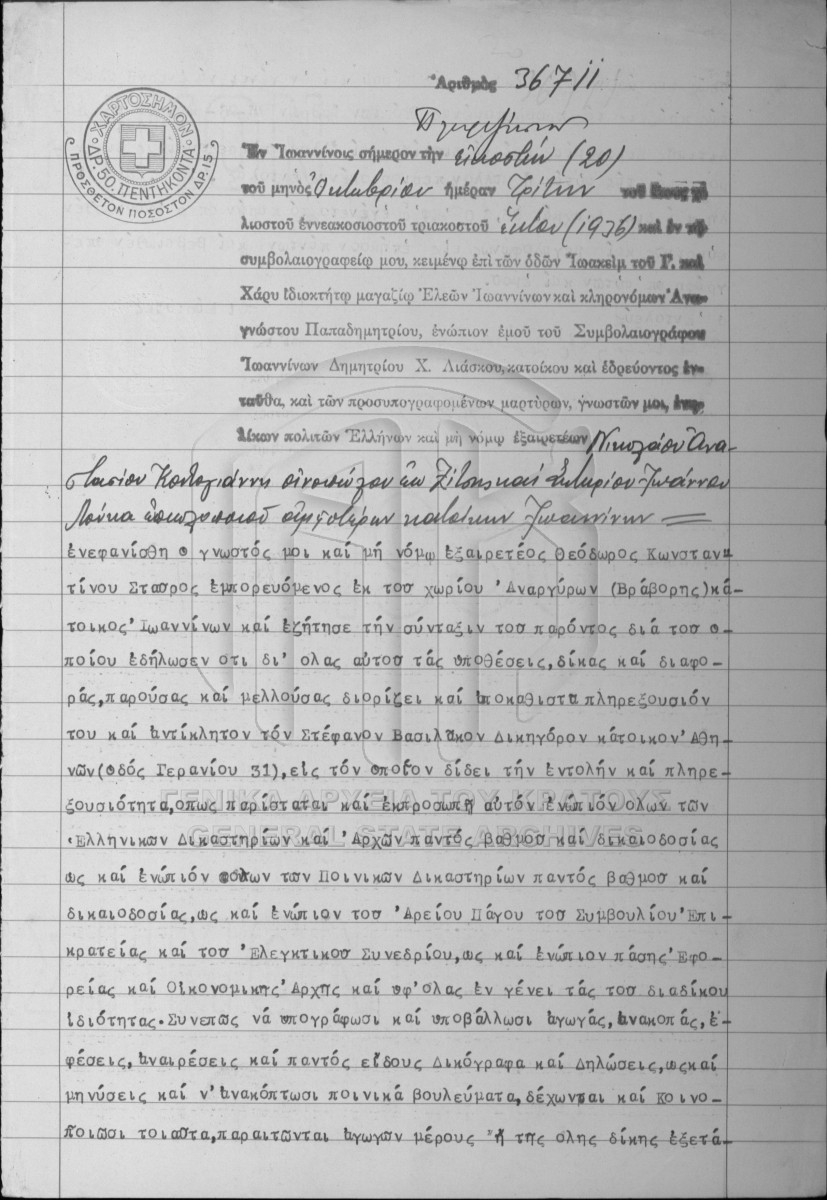 Ἀριθμὸς 36711
Πληρεξούσιον
ΧΑΡΤΟΣΗΜΟΝ
ΔΡ. 50. ΠΕΝΤΗΚΟΝΤΑ
ΠΡΟΣΘΕΤΟΝ ΠΟΣΟΣΤΟΝ ΔΡ. 15
Ἐν Ἰωαννίνοις σήμερον τὴν εἰκοστήν (20)
τοῦ μηνὸς Ὀκτωβρίου ἡμέραν Τρίτην τοῦ ἔτους χι-
λιοστοῦ ἐννεακοσιοστοῦ τριακοστοῦ ἕκτου (1936) καὶ ἐν τῷ
συμβολαιογραφείῳ μου, κειμένῳ ἐπὶ τῶν ὁδῶν Ἰωακεὶμ τοῦ Γ. καὶ
Χάρυ ἰδιοκτήτῳ μαγαζίῳ Ἐλεῶν Ἰωαννίνων καὶ κληρονόμων Ἀνα-
γνώστου Παπαδημητρίου, ἐνώπιον ἐμοῦ τοῦ Συμβολαιογράφου
Ἰωαννίνων Δημητρίου Χ. Λιάσκου, κατοίκου καὶ ἑδρεύοντος ἐν-
ταῦθα, καὶ τῶν προσυπογραφομένων μαρτύρων, γνωστῶν μοι, ἐνη-
λίκων πολιτῶν Ἑλλήνων καὶ μὴ νόμῳ ἐξαιρετέων Νικολάου Ἀνα-
στασίου Κοντογιάννη οἰνοπώλου ἐκ Ζίτσης καί Σωτηρίου Ἰωάννου
Λούκα ἀμφοτέρων κατοίκων Ἰωαννίνων
ἐνεφανίσθη ο γνωστός μοι καί μή νόμῳ ἐξαιρετέος Θεόδωρος Κωνσταν
τίνου Στασρος ἐμπορευόμενος ἐκ τοσ χωρίου 'Αναργύρων (Βράβορης) κά-
τοικος 'Ιωαννίνων καί ἐζήτησε τήν σύνταξιν τοσ παρόντος διά τοσ ο-
ποίου ἐδήλωσεν οτι δι' ολας αὐτοσ τάς υποθέσεις, δίκας καί διαφο-
ράς, παρούσας καί μελλούσας διορίζει καί ἀποκαθιστα πληρεξουσιόν
του καί ἀντίκλητον τόν Στέφανον Βασιλάκον Δικηγόρον κάτοικον 'Αθη-
νῶν (οδός Γερανίου 31), εἰς τόν οποῖον δίδει τήν ἐντολήν καί πληρε-
ξουσιότητα, οπως παρίσταται καί ἐκπροσωπῆ αὐτόν ἐνώπιόν ολων τῶν
Ἑλληνικων Δικαστηρίων καί 'Αρχῶν παντός βαθμοσ καί δικαιοδοσίας
ως καί ἐνώπιόν ολων των Ποινικων Δικαστηρίων παντός βαθμοσ καί
δικαιοδοσίας, ως καί ἐνώπιον τοσ 'Αρείου Πάγου τοσ Συμβουλίου 'Επι-
κρατείας καί τοσ 'Ελεγκτικοσ Συνεδρίου, ως καί ἐνώπιον πάσης 'Εφο-
ρείας καί Οἰκονομικης 'Αρχης καί υφ' ολας ἐν γένει τάς τοσ διαδίκου
ἰδιότητας. Συνεπῶς νά υπογράφωσι καί υποβάλλωσι ἀγωγάς, ἀνακοπάς, ἐ-
φέσεις, ἀναιρέσεις καί παντός εἴδους Δικόγραφα καί Δηλώσεις, ως καί
μηνύσεις καί ν' ἀνακόπτωσι ποινικά βουλεύματα, δέχωνται καί Κοινο-
ποιῶσι τοιαστα, παραιτῶνται ἀγωγων μέρους ἤ της ολης δίκης ἐξετά-
ΓΕΝΙΚΑ ΑΡΧΕΙΑ ΤΟΥ ΚΡΑΤΟΥΣ
GENERAL STATE ARCHIVES